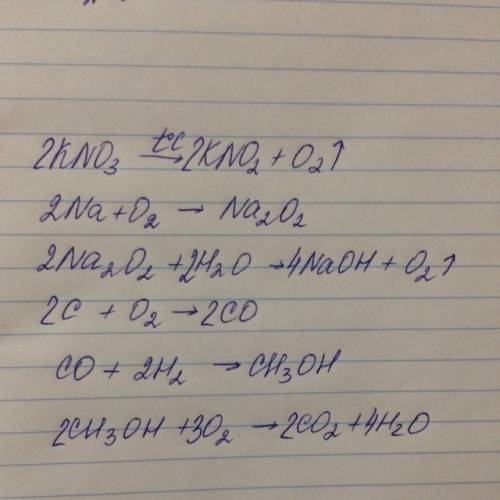 2KNO₃ t°C→ 2KNO₂ + O₂↑
2Na + O₂ → Na₂O₂
2Na₂O₂ + 2H₂O → 4NaOH + O₂↑
2C + O₂ → 2CO
CO + 2H₂ → CH₃OH
2CH₃OH + 3O₂ → 2CO₂ + 4H₂O